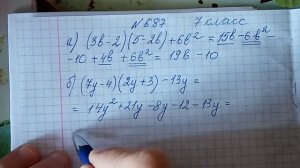 №687 7 класс
а) (3b-2)(5-2b)+6b² = 15b-6b²-
-10+4b+6b² = 19b-10
б) (7y-4)(2y+3)-13y =
= 14y²+21y-8y-12-13y =